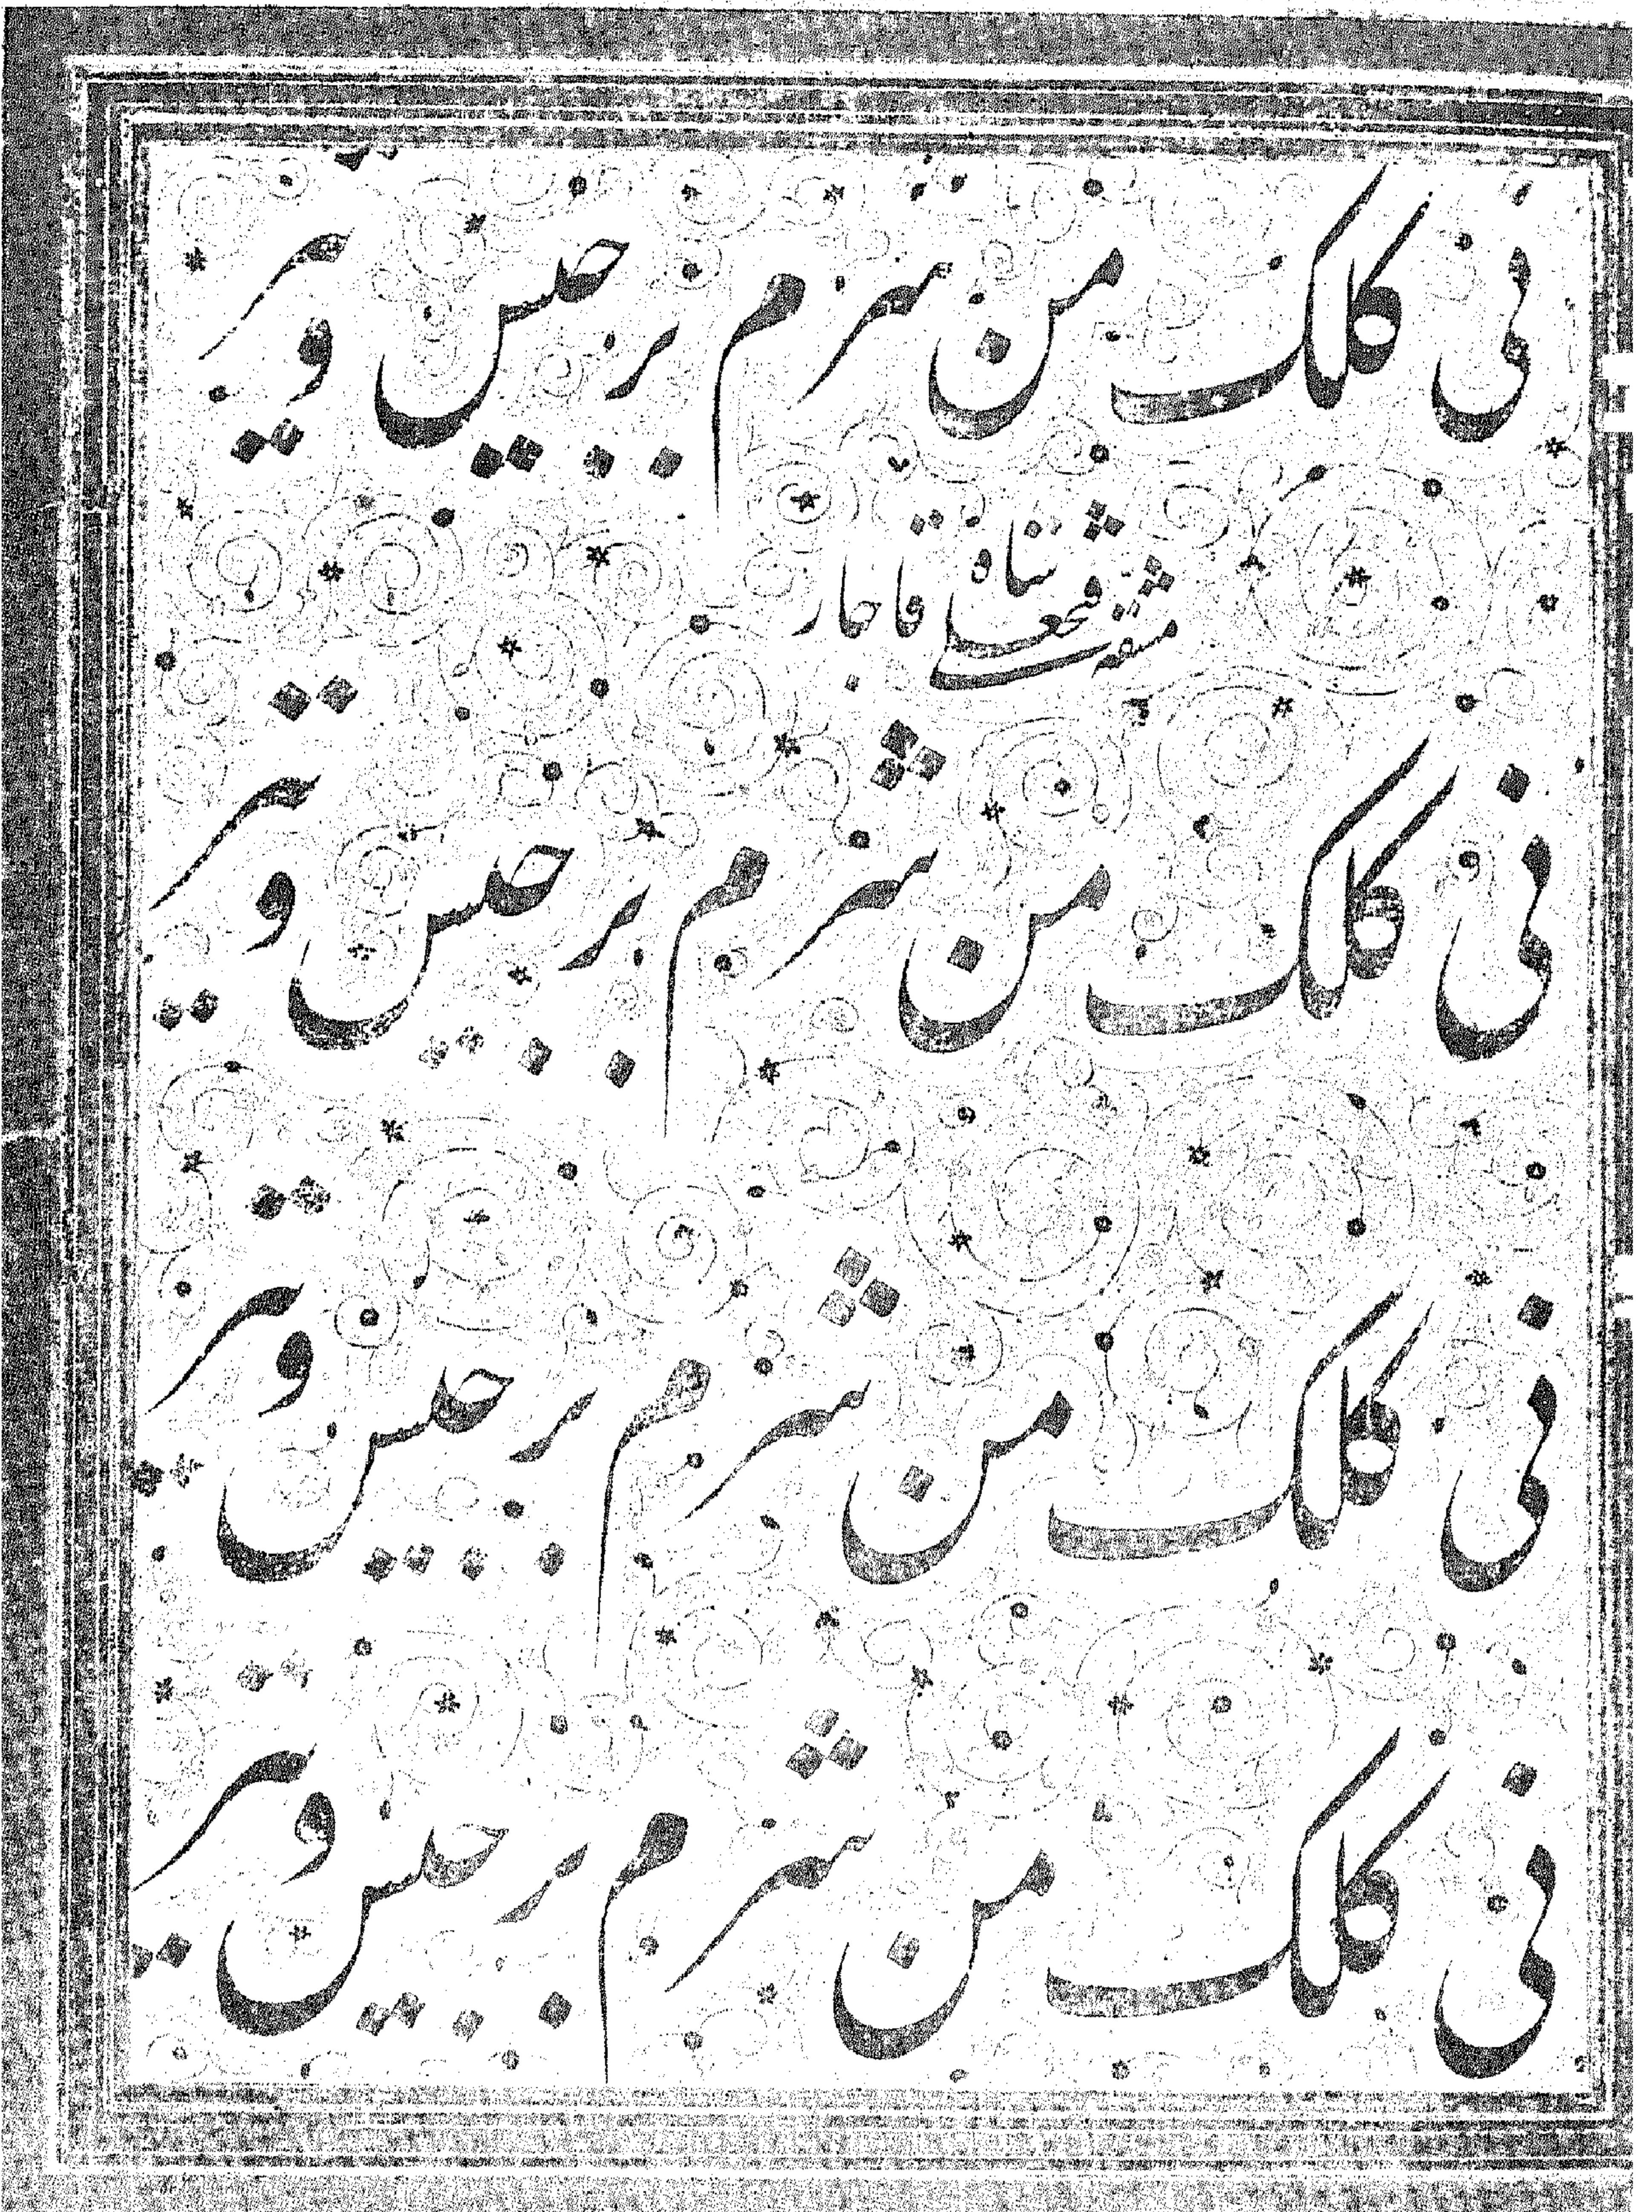 نی کلک من شرم برجیس و تیر
مشقه فتحعلی شاه قاجار
نی کلک من شرم برجیس و تیر
نی کلک من شرم برجیس و تیر
نی کلک من شرم برجیس و تیر